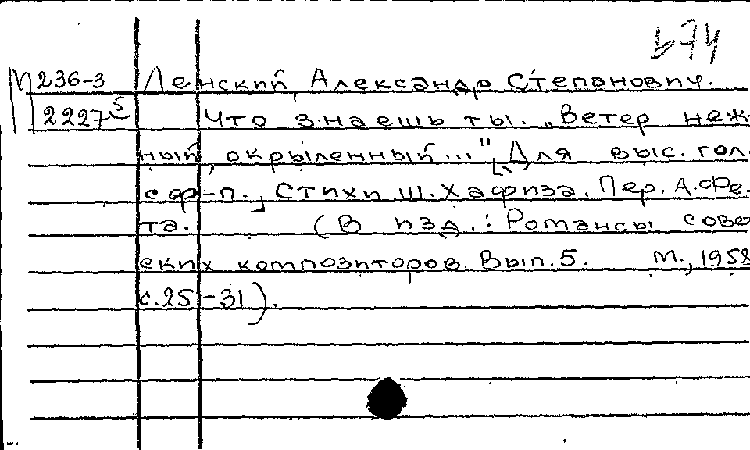 674
М 236-3 Ленский, Александр Степанович.
2227 5 Что знаешь ты. „Ветер неж-
ный, окрыленный..." [Для выс. гол.
с ф-п.], Стихи Ш. Хафиза. Пер. А. Фе-
та. (В изд.: Романсы совe
еких композиторов. Вып. 5. М., 1958
с. 25-31).